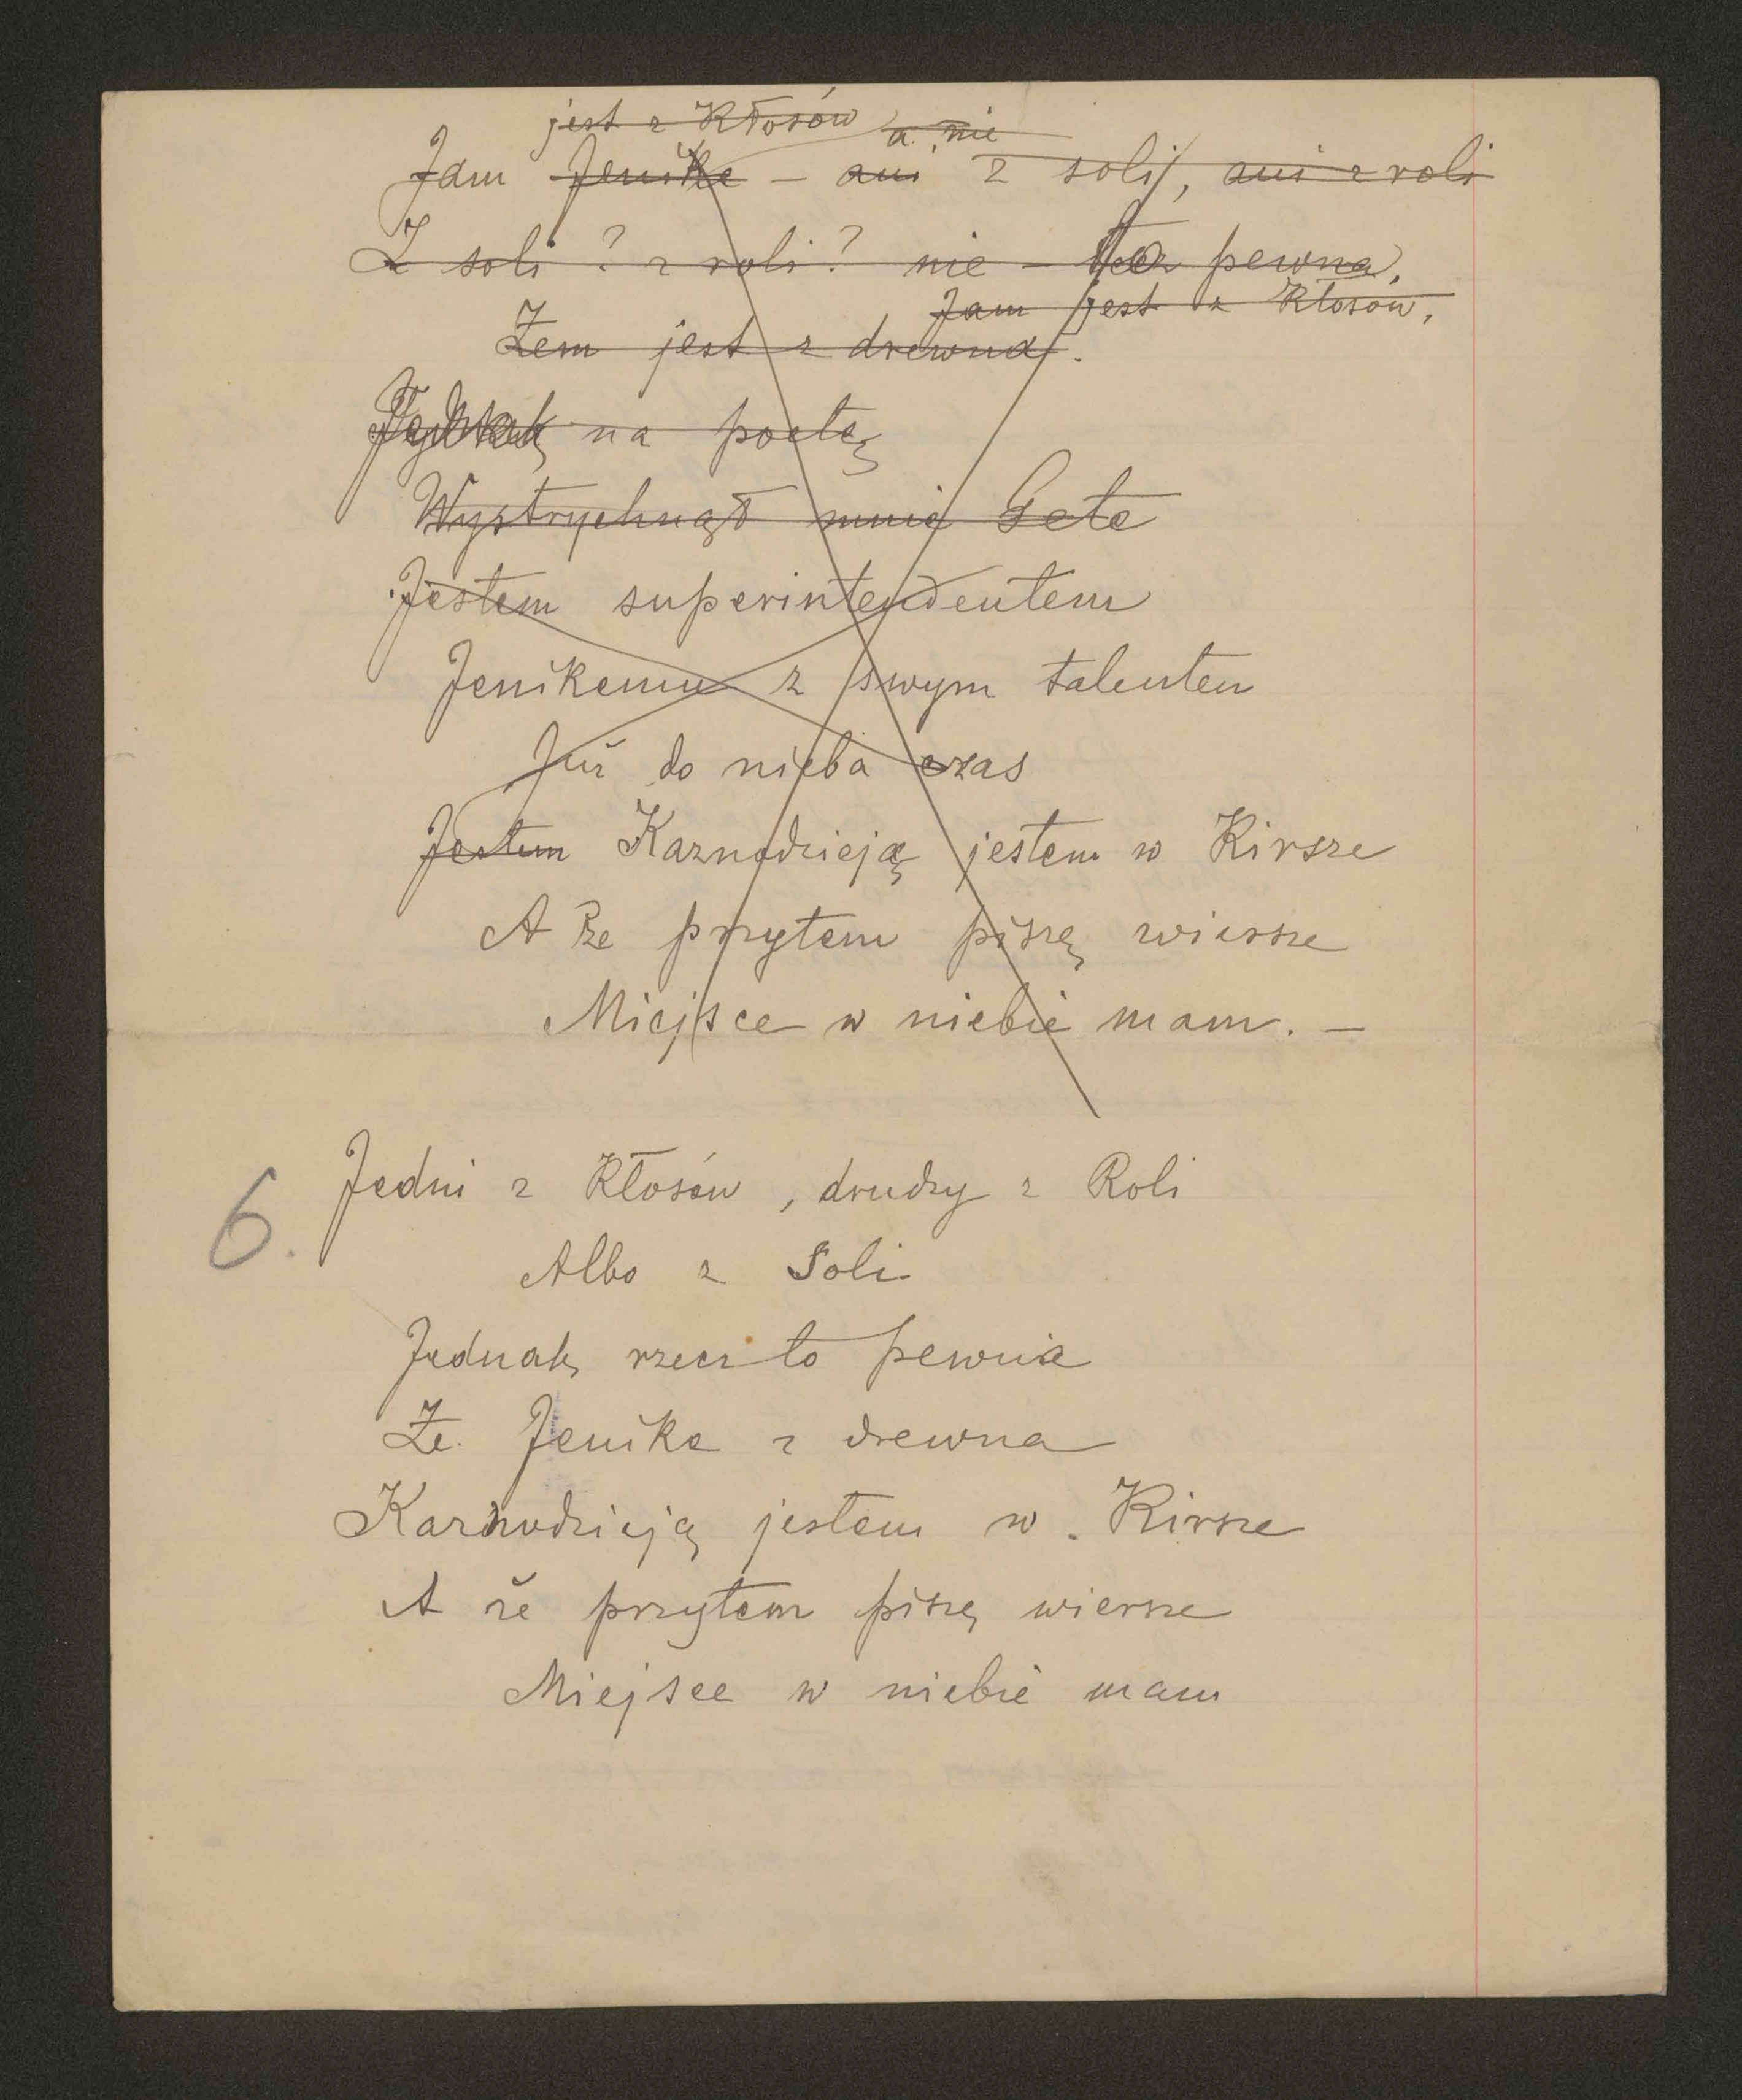 jest z Kłosów a nie
Jam Jenike – ani z soli, ani z roli
Z soli? z roli? nie – pewna,
Jam jest z Kłosów,
Żem jest z drewna.
na poetę
Wystrychnął mnie Gete
Jestem superintendentem
Jenikemu z swym talentem
Już do nieba czas
Jestem Kaznodzieją jestem w Kirsze
A że przytem piszę wiersze
Miejsce w niebie mam. –
6. Jedni z Kłosów, drudzy z Roli
Albo z Soli
Jednak rzecz to pewna
Że Jenike z drewna
Kaznodzieją jestem w Kirsze
A że przytem piszę wiersze
Miejsce w niebie mam